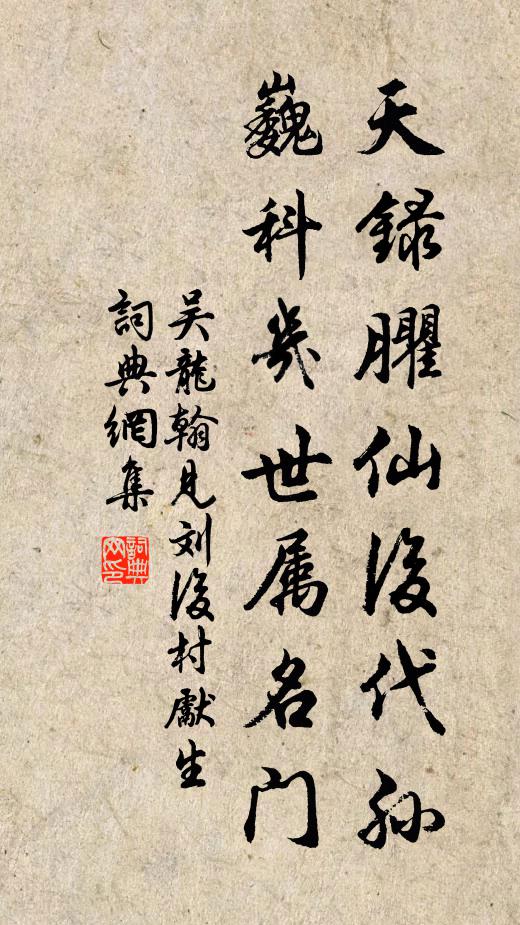 天録臞仙後代孫
巍科幾世属名门
吴龍翰見刘後村獻生
詞典網集
詞典網印